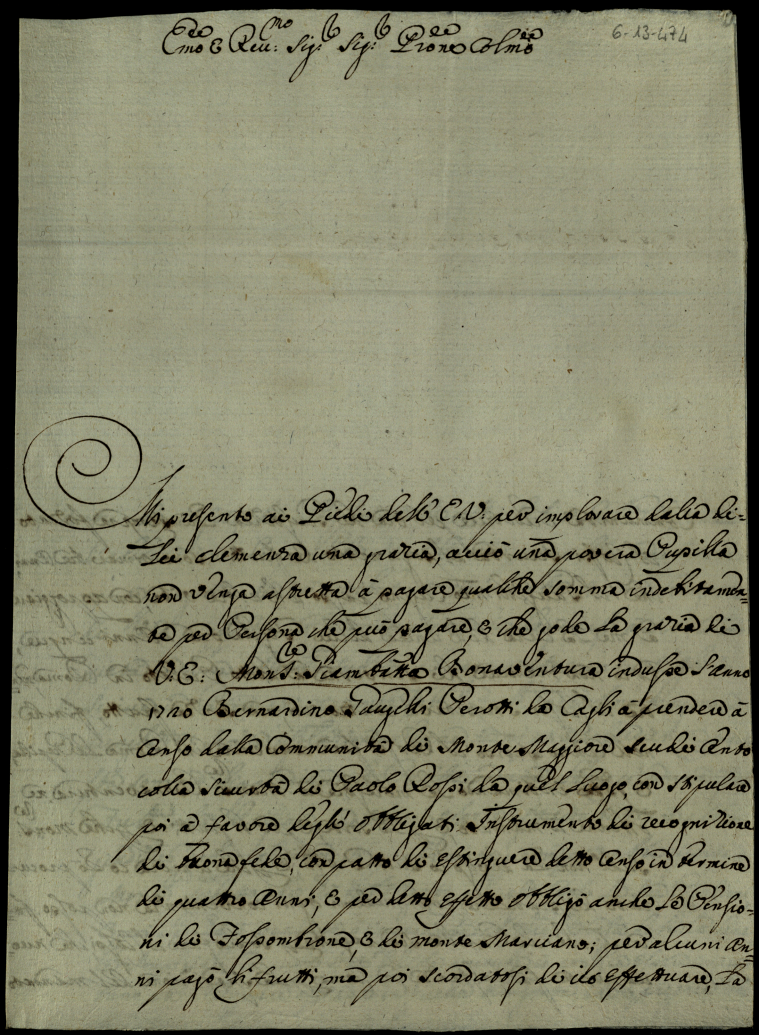 Emo e Rev.mo Sig.r Sig.r Prone Colmo
6-13-474
Mi presento ai Piedi dell' E.V. per implorare dalla di-
Lei clemenza una grazia, acciò una povera Pupilla
non venga astretta à pagare qualche somma indebitamen-
te per Persona che può pagare, e che gode la grazia di
V. E: Mons.re Giambatta Bonaventura indusse l'anno
1720 Bernardino Perotti da Cagli à prendere à
Censo dalla Communità di Monte Maggiore scudi Cento
colla sicurtà di Paolo Rossi da quel Luogo, con stipulare
poi à favore degli obbligati Instrumento di recognizione
di buona fede, con patto di estinguere detto Censo in termine
di quattro Anni, e per detto effetto obbligò anche Le Pensio-
ni di Fossombrone, e di monte Marciano; per alcuni An-
ni pagò li frutti, mà poi scordatosi di ciò effettuare, la